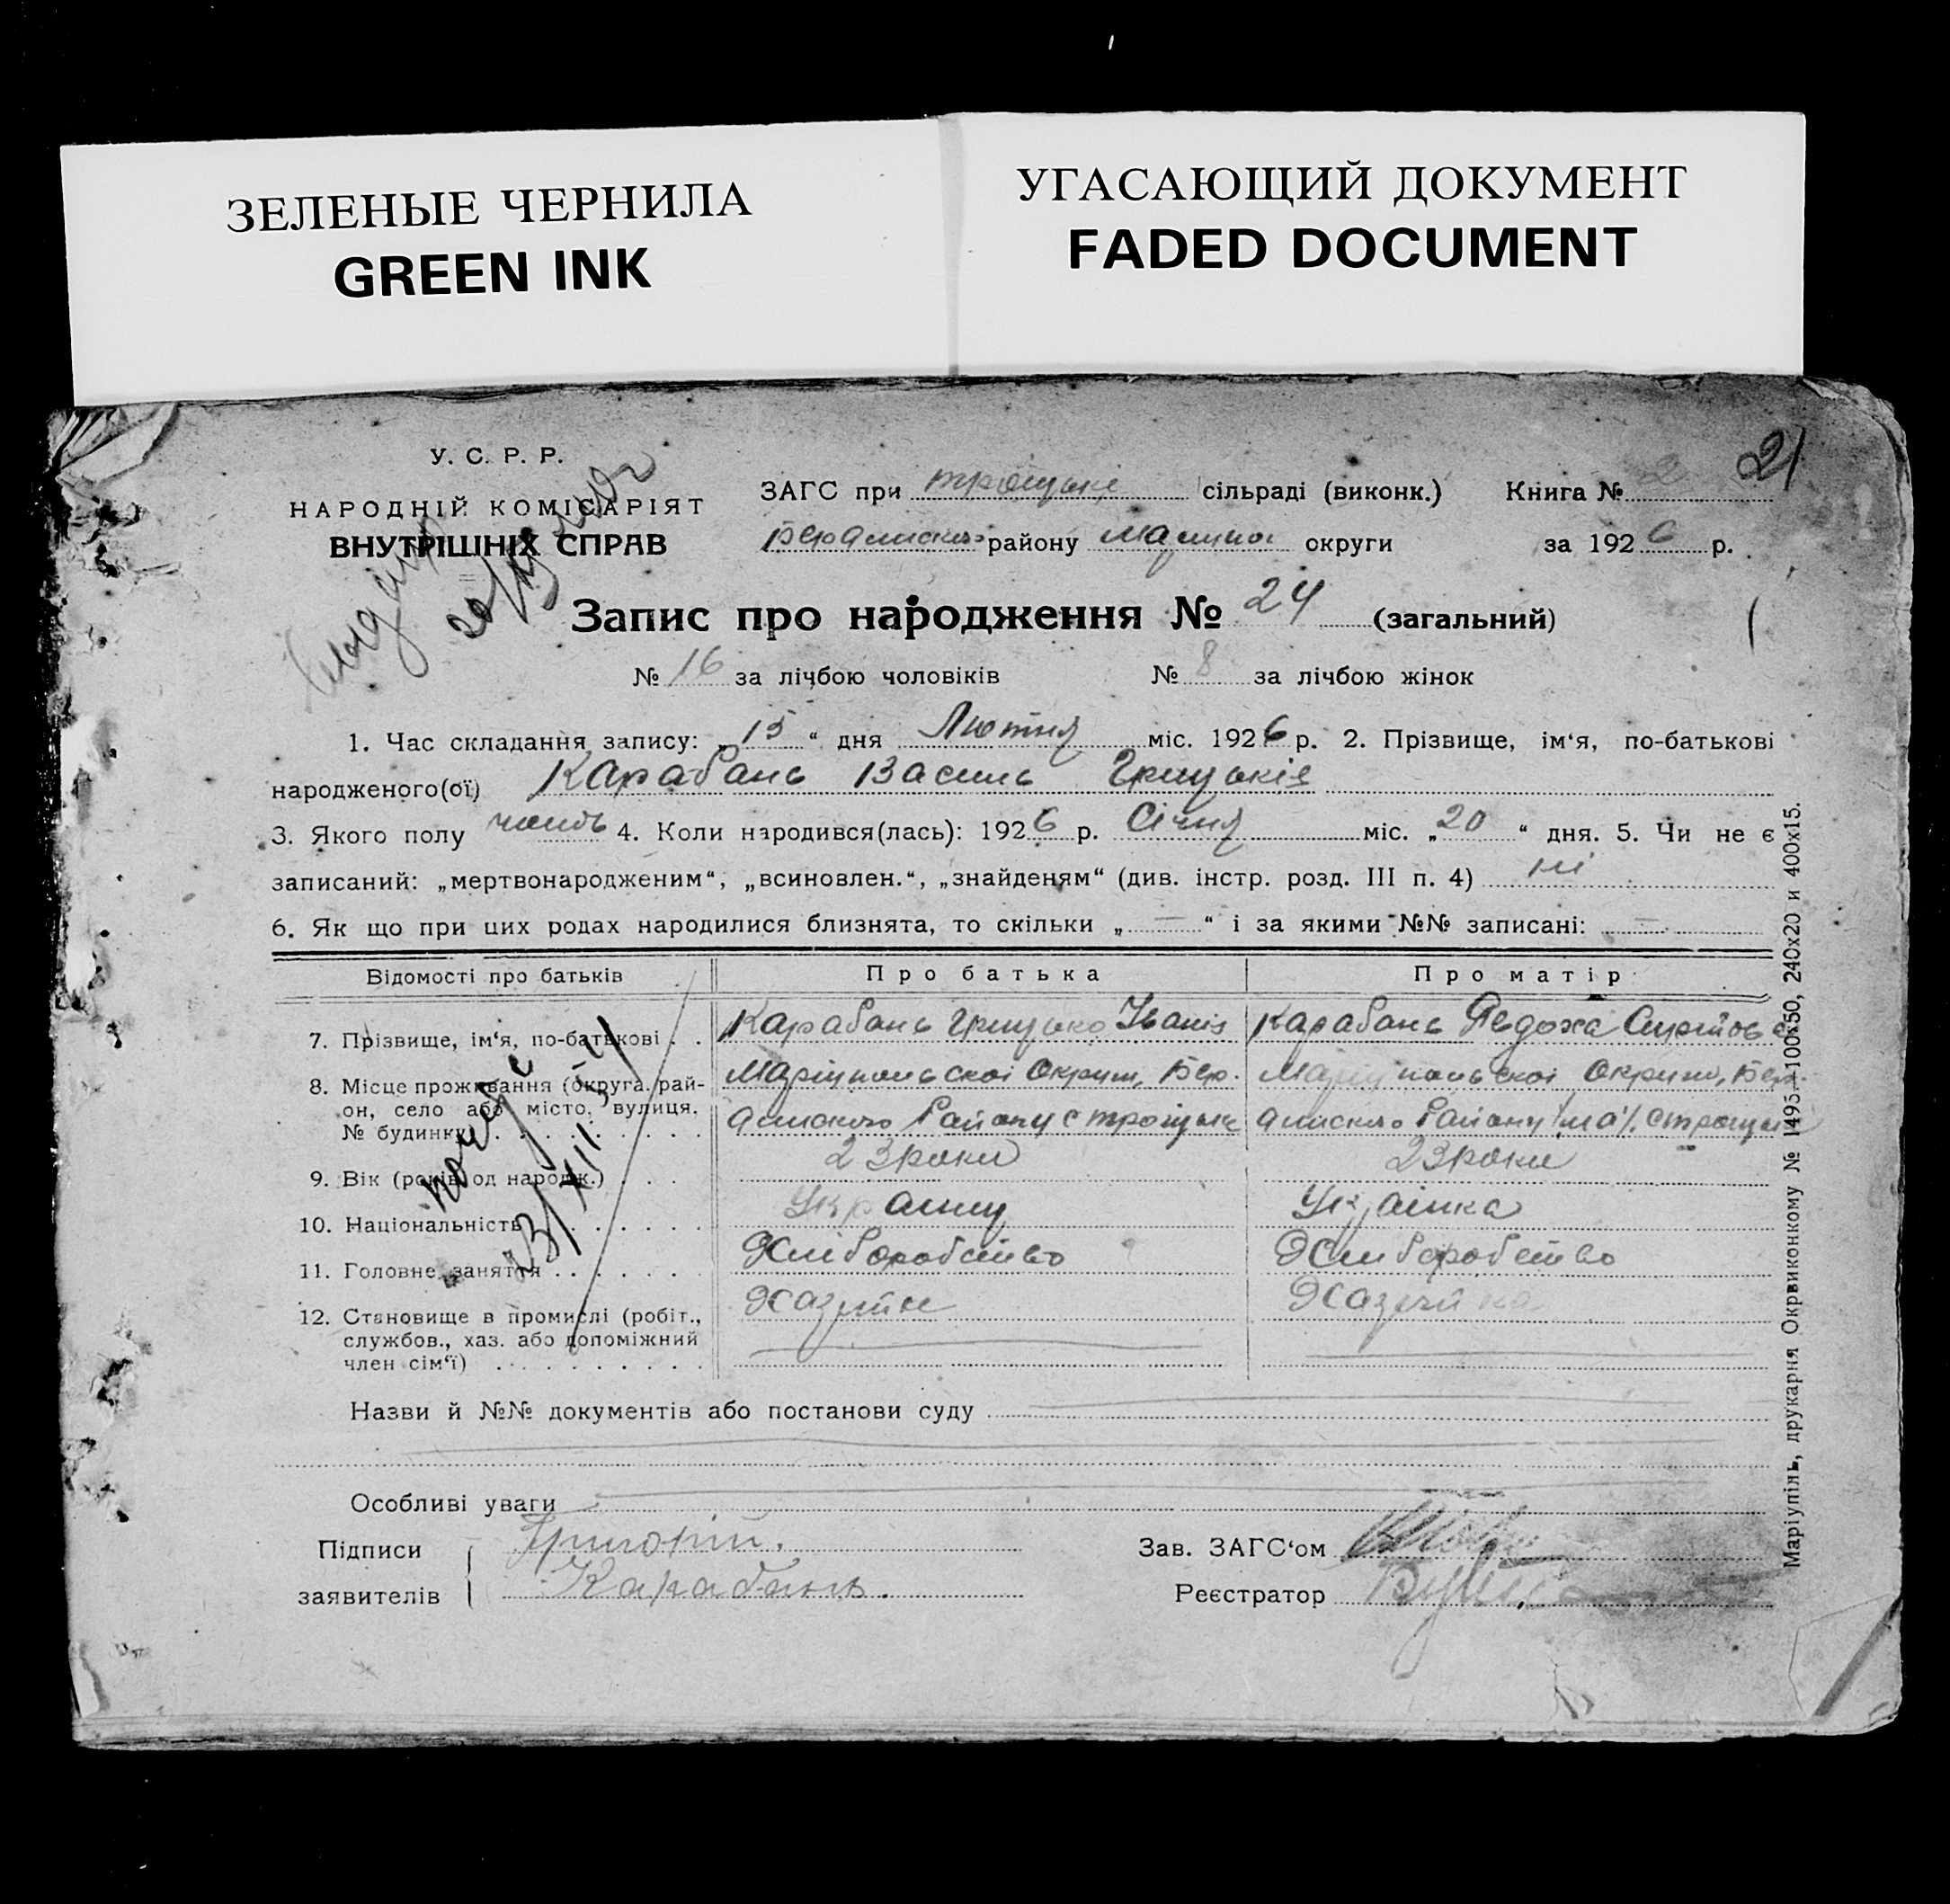 ЗЕЛЕНЫЕ ЧЕРНИЛА
GREEN INK
УГАСАЮЩИЙ ДОКУМЕНТ
FADED DOCUMENT
21
У. С. Р. Р.
НАРОДНІЙ КОМІСАРІЯТ
ВНУТРІШНІХ СПРАВ
ЗАГС при троіцькі сільраді (виконк.) Книга № 2
району округи за 1926 р.
Запис про народження № 24 (загальний)
№ 16 за лічбою чоловіків № 8 за лічбою жінок
1. Час складання запису: „15“ дня Лютня міс. 1926 р. 2. Прізвище, ім‘я, по-батькові
народженого(ої) Карабань Василь Грицьків
3. Якого полу 4. Коли народився(лась): 1926 р. Січня міс. „20“ дня. 5. Чи не є
записаний: „мертвонародженим“, „всиновлен.“, „знайденям“ (див. інстр. розд. III п. 4) ні
6. Як що при цих родах народилися близнята, то скільки „—“ і за якими №№ записані: —
Відомості про батьків Про батька Про матір
7. Прізвище, ім‘я, по-батькові . . Карабань Грицько Іванів Карабань
8. Місце проживання (округа, рай- Маріупольскоі Округи, Бер. Маріупольскоі Округи, Бер.
он, село або місто, вулиця, Району с троіцьке Району
№ будинку)
9. Вік (років од народж.) . . . 23 роки 23 роки
10. Національність Украинц Украінка
11. Головне заняття Хліборобство Хліборобство
12. Становище в промислі (робіт., Хазяйн Хазяйка
службов., хаз. або допоміжний
член сім‘ї)
Назви й №№ документів або постанови суду
Особливі уваги
Підписи Григорій. Зав. ЗАГС‘ом
заявителів Карабань. Реєстратор
Маріупіль, друкарня Окрвиконкому № 1495–100х50, 240х20 и 400х15.